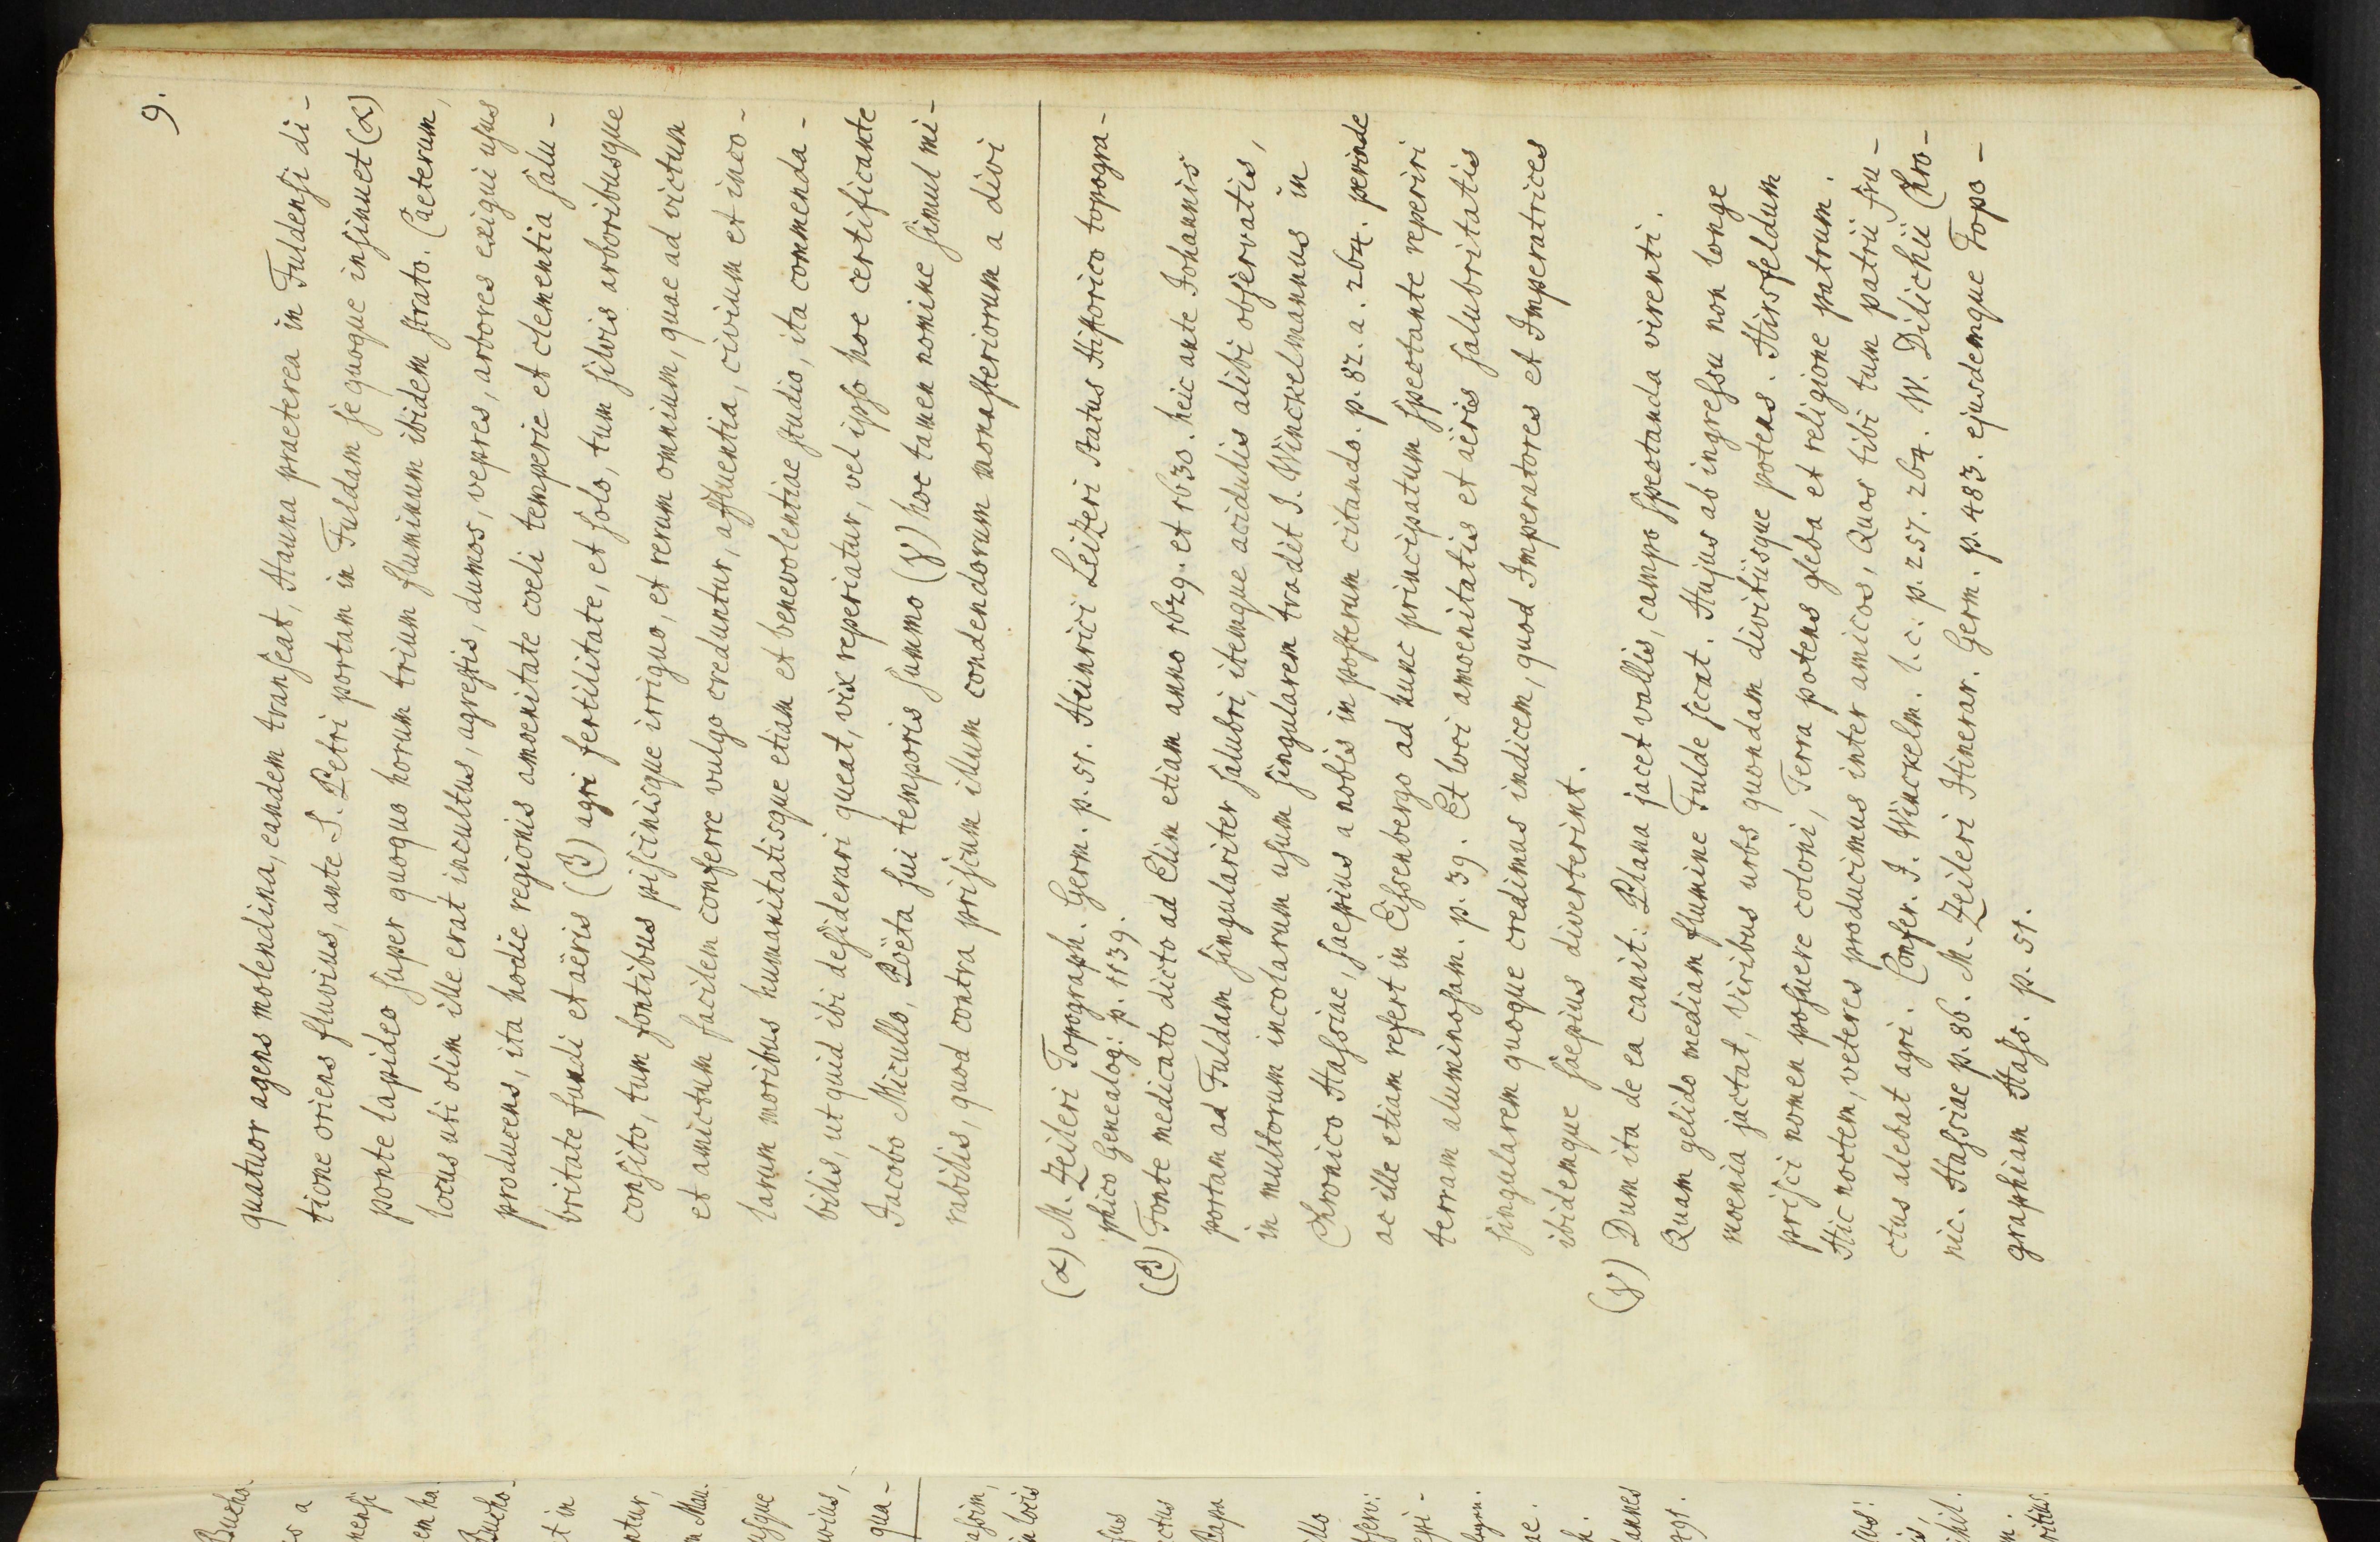 9.
quatuor agens molendina, eandem transeat, Hauna praeterea in Fuldensi di-
tione oriens fluvius, ante S. Petri portam in Fuldam se quoque insinuet (α)
ponte lapideo super quoquo horum trium fluminum ibidem strato. Caeterum,
locus uti olim ille erat incultus, agrestis, dumos, vepres, arbores exigui usus
producens, ita hodie regionis amoenitate coeli temperie et clementia salu-
britate fundi et aëris (β) agri fertilitate, et solo, tum silvis arboribusque
consito, tum fontibus piscinisque irriguo, et rerum omnium, quae ad victum
et amictum facilem conferre vulgo creduntur, affluentia, civium et inco-
larum moribus humanitatisque etiam et benevolentiae studio, ita commenda-
bilis, ut quid ibi desiderari queat, vix reperiatur, vel ipso hoc certificante
Jacobo Micullo, Poëta sui temporis summo (γ) hoc tamen nomine simul mi-
rabilis, quod contra priscum illum condendorum monasteriorum a divi
(α) M. Zeileri Topograph. Germ. p. 51. Heinrici Leizeri Status Historico topogra-
phico Genealog: p. 1139.
(β) Fonte medicato dicto ad Elim etiam anno 1629. et 1630. heic ante Johannis
portam ad Fuldam singulariter salubri, itemque acidulis alibi observatis,
in multorum incolarum usum singularem tradit J. Winckelmannus in
Chronico Hassiae, saepius a nobis in posterum citando. p. 82. a. 264. perinde
ac ille etiam refert in Eissenbergo ad hunc principatum spectante reperiri
terram aluminosam. p. 39. Et loci amoenitatis et aëris salubritatis
singularem quoque credimus indicem, quod Imperatores et Imperatrices
ibidemque saepius diverterint.
(γ) Dum ita de ea canit: Plana jacet vallis, campo spectanda virenti.
Quam gelido mediam flumine Fulde secat. Hujus ab ingressu non longe
moenia jactat, Viribus urbs quondam divitiisque potens. Hirsfeldum
prisci nomen posuere coloni, Terra potens gleba et religione patrum.
Hic noctem, veteres producimus inter amicos, Quos tibi tum patrii fru-
ctus alebat agri. Confer. J. Winckelm. l. c. p. 257. 264. W. Dilichii Chro-
nic. Hassiae p. 86. M. Zeileri Itinerar. Germ. p. 483. ejusdemque Topo-
graphiam Hass. p. 51.
Bucho-
s a
nensi
em ha
Bucho-
t in
ntur,
m Mau.
usque
uvius,
qua-
in locis
fus
ctus
Papa
illo
epi-
ae.
h.
annes
791.
ihil.